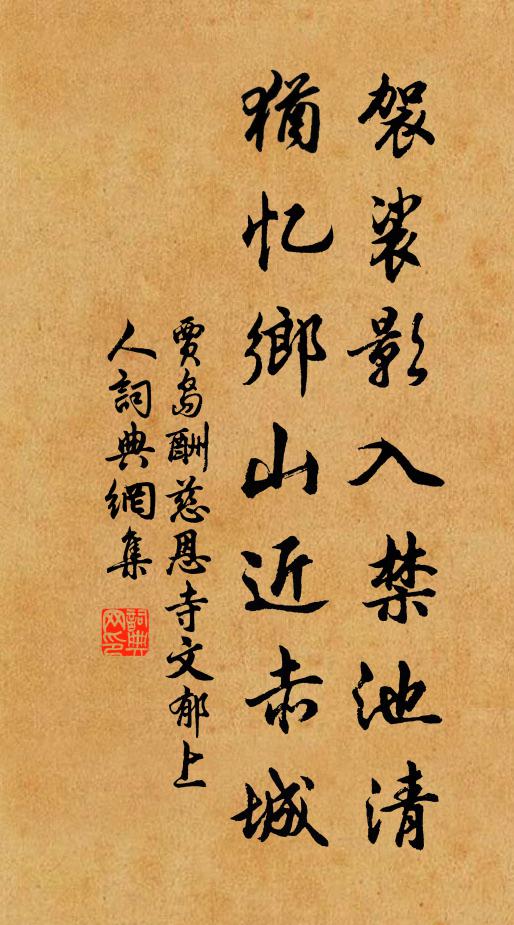 袈裟影入禁池清
猶忆鄉山近赤城
贾岛酬慈恩寺文郁上
人詞典網集
詞典
网印